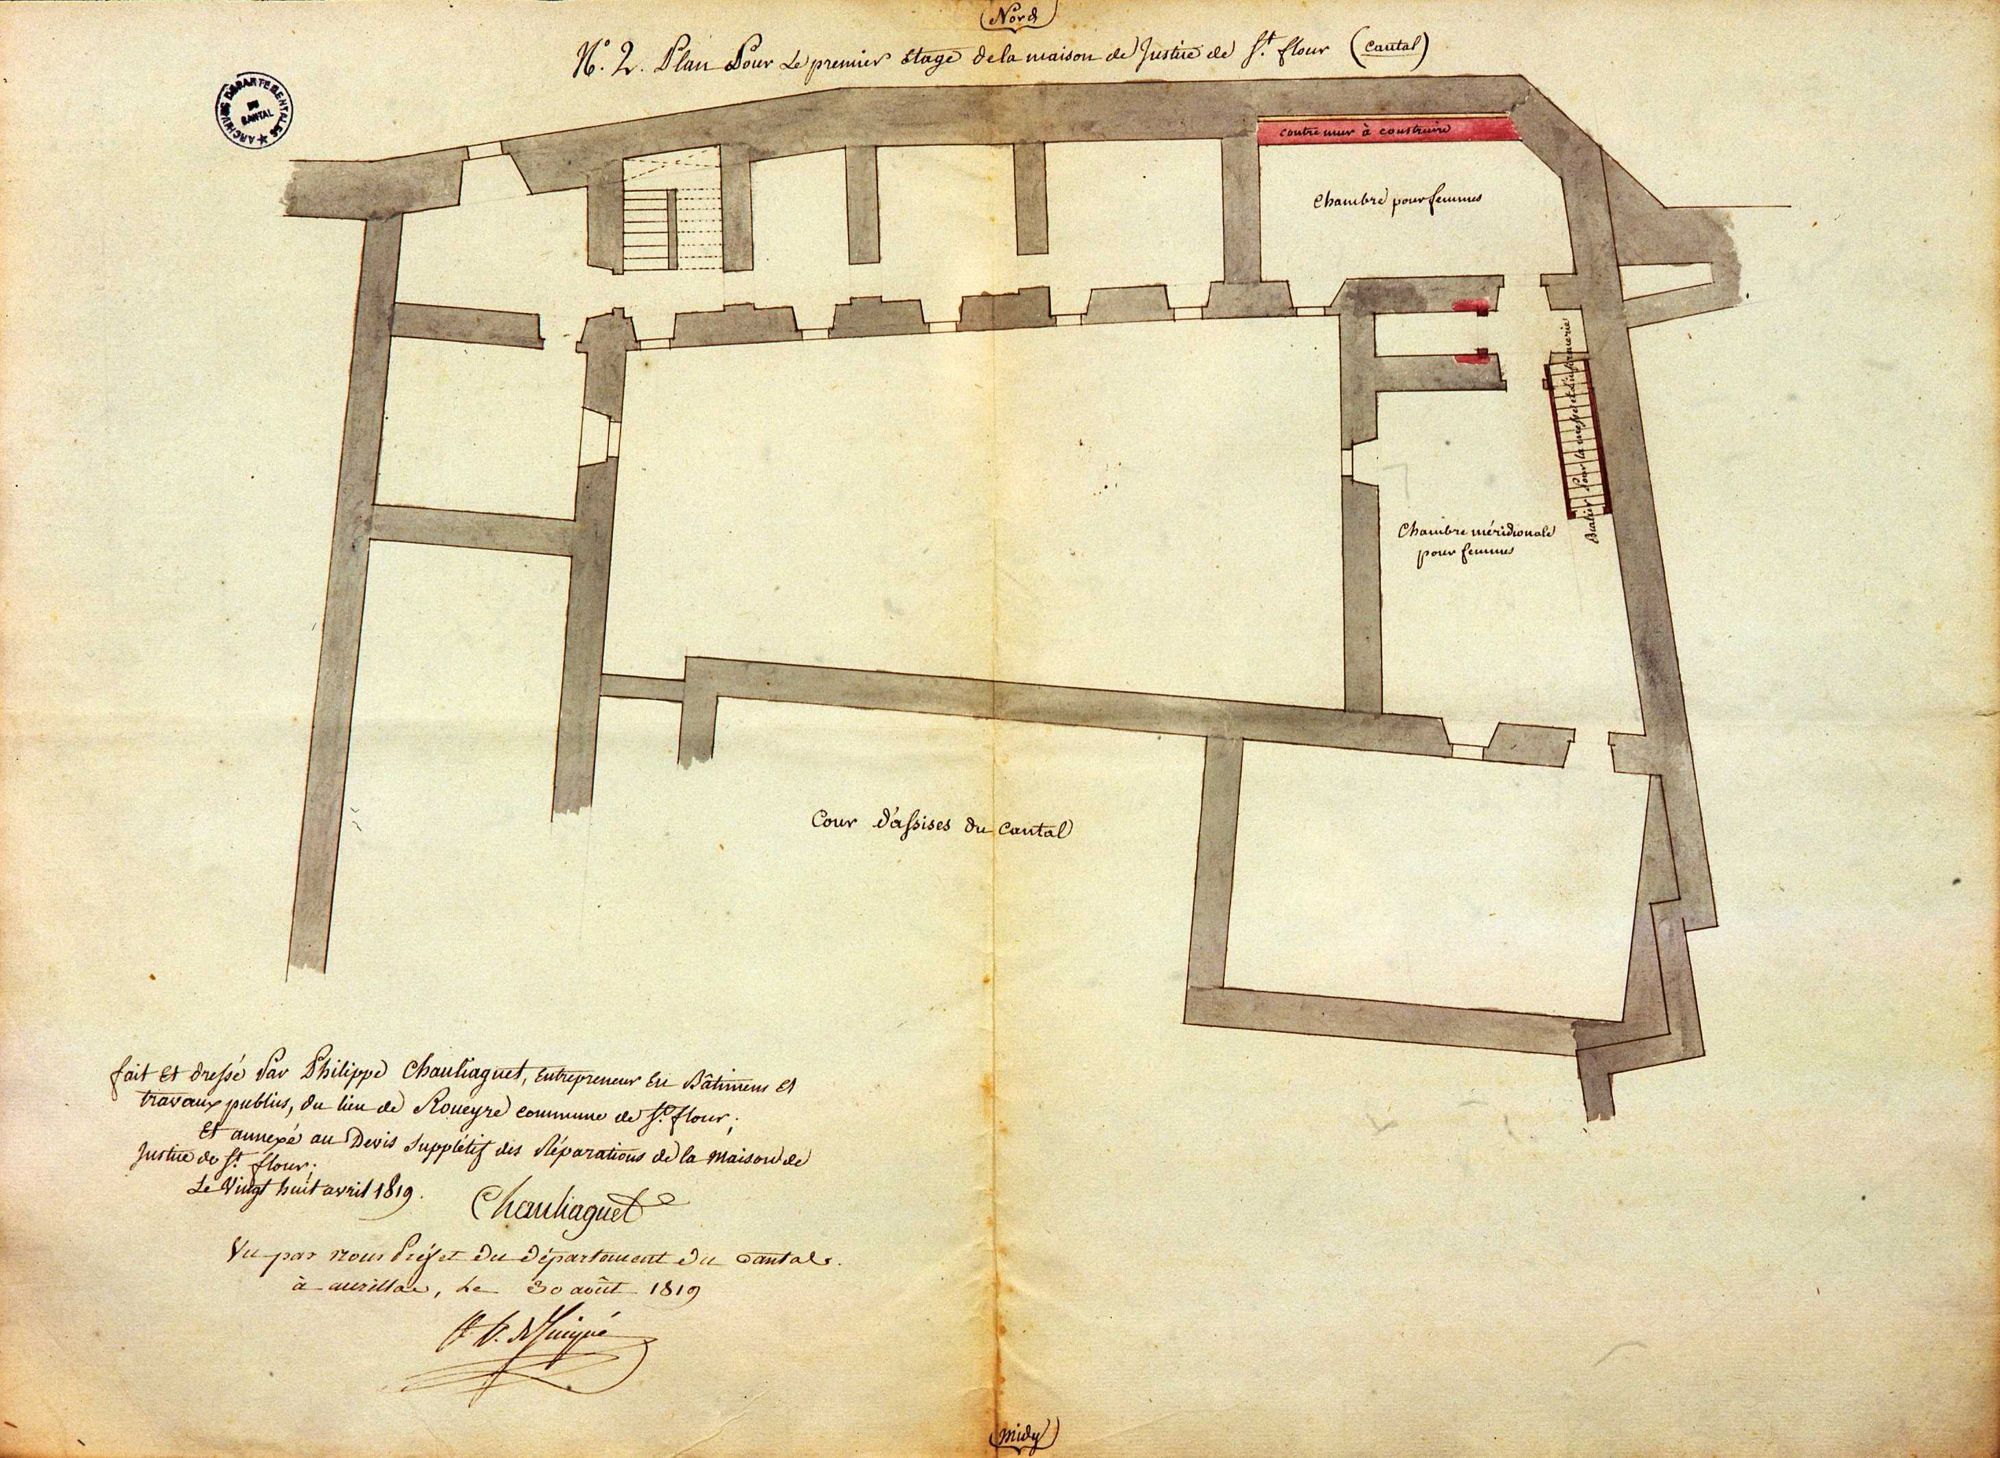 (Nord)
N.° 2. Plan Pour Le premier étage de la maison de Justice de S.t flour (Cantal)
ARCHIVES DÉPARTEMENTALES
DU
CANTAL
contre mur à construire
Chambre pour femmes
Escalier Pour la messe et l'infirmerie
Chambre méridionale
pour femmes
Cour d'assises du Cantal
fait Et dressé Par Philippe Chauliaguet, Entrepreneur En Bâtimens Et
travaux publics, du lieu de Roueyre commune de S.t flour;
Et annexé au Devis Supplétif des Réparations de la Maison de
Justice de S.t flour;
Le Vingt huit avril 1819.
Chauliaguet
Vu par nous Préfet du département du Cantal.
à aurillac, Le 30 août 1819
(midy)